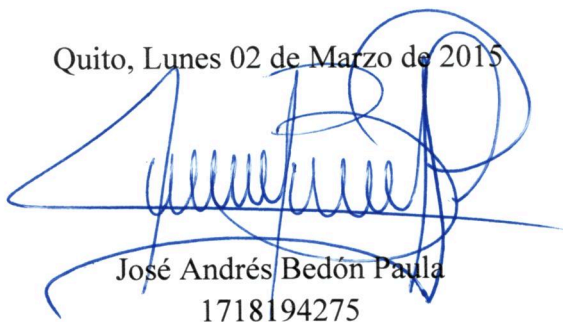 Quito, Lunes 02 de Marzo de 2015
José Andrés Bedón Paula
1718194275